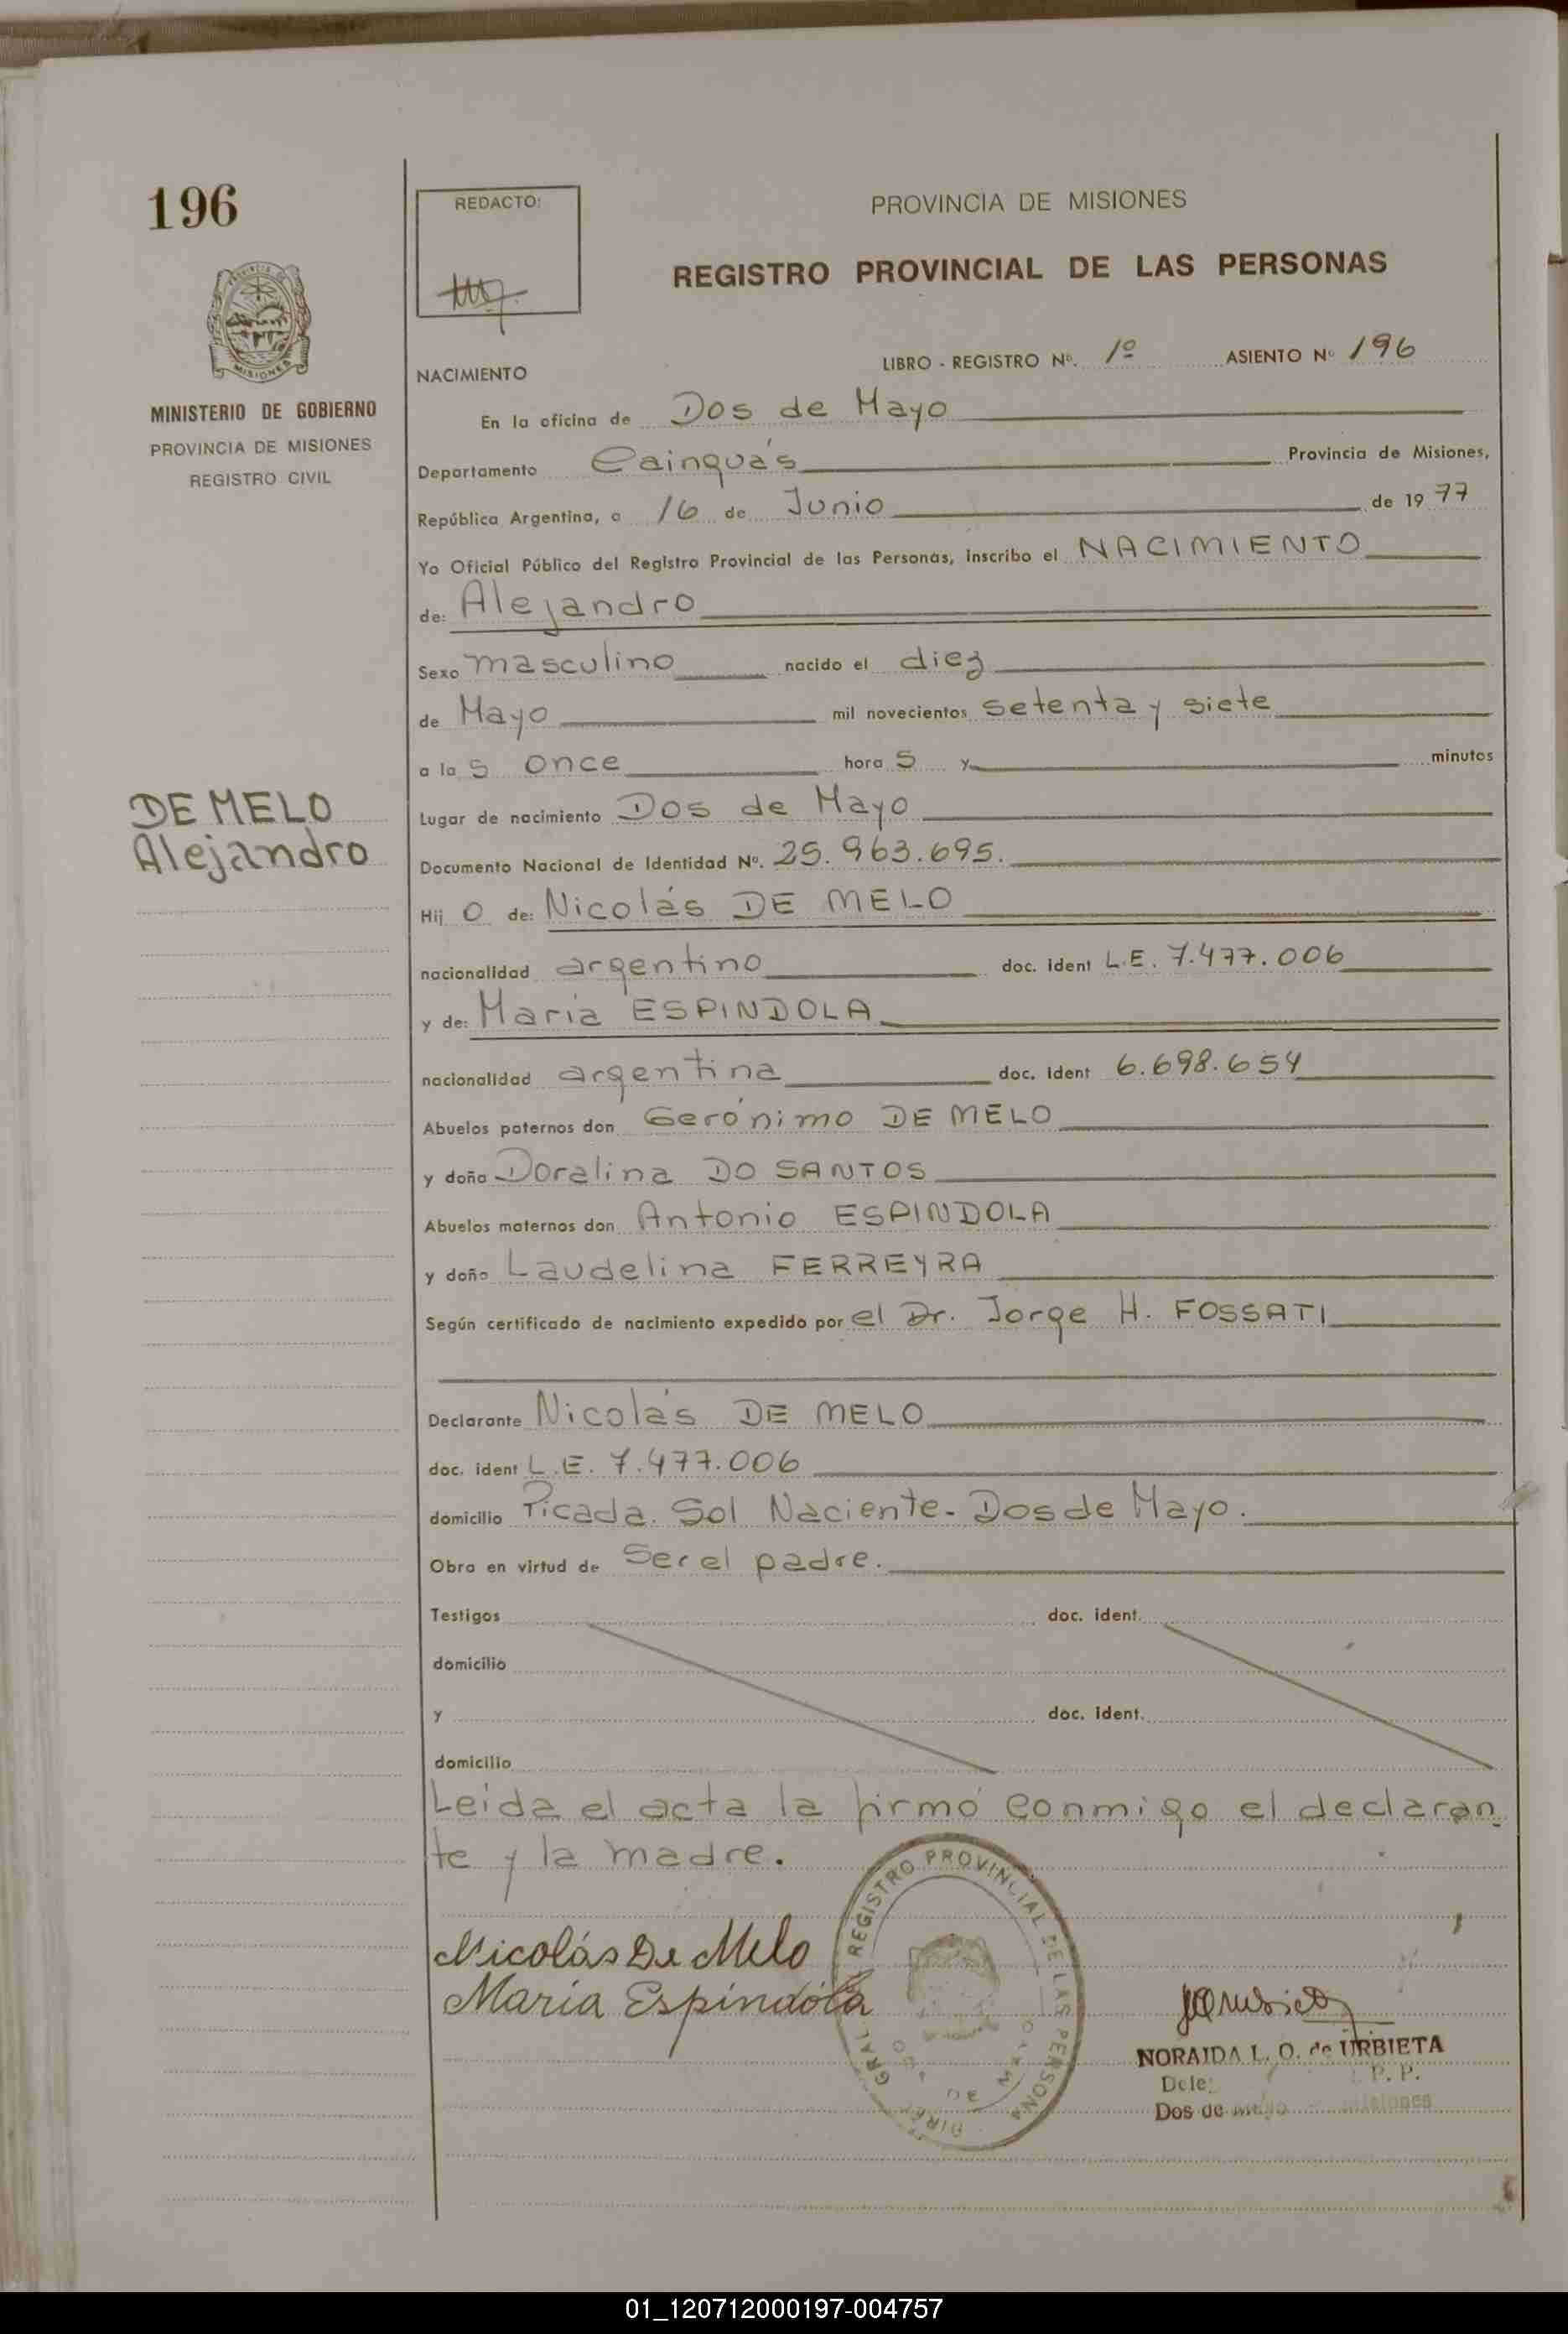 196
REDACTO:
PROVINCIA DE MISIONES
REGISTRO PROVINCIAL DE LAS PERSONAS
MISIONES
MINISTERIO DE GOBIERNO
PROVINCIA DE MISIONES
REGISTRO CIVIL
LIBRO - REGISTRO Nº. 1º ASIENTO Nº 196
NACIMIENTO
En la oficina de Dos de Mayo
Departamento Cainguás Provincia de Misiones,
República Argentina, a 16 de Junio de 1977
Yo Oficial Público del Registro Provincial de las Personas, inscribo el NACIMIENTO
de: Alejandro
Sexo masculino nacido el diez
de Mayo mil novecientos setenta y siete
a las once horas y minutos
Lugar de nacimiento Dos de Mayo
DE MELO
Alejandro
Documento Nacional de Identidad Nº. 25.963.695.
Hijo de: Nicolás DE MELO
nacionalidad argentino doc. ident L.E. 7.477.006
y de: María ESPINDOLA
nacionalidad argentina doc. ident 6.698.654
Abuelos paternos don Gerónimo DE MELO
y doña Doralina DO SANTOS
Abuelos maternos don Antonio ESPINDOLA
y doña Laudelina FERREYRA
Según certificado de nacimiento expedido por el Dr. Jorge H. FOSSATI
Declarante Nicolás DE MELO
doc. ident L.E. 7.477.006
domicilio Picada Sol Naciente - Dos de Mayo.
Obra en virtud de Ser el padre.
Testigos doc. ident.
domicilio
y doc. ident.
domicilio
Leida el acta la firmó conmigo el declaran
te y la madre.
REGISTRO PROVINCIAL DE LAS PERSONAS
Nicolás De Melo
María Espíndola
NORAIDA L. O. de URBIETA
P. P.
Dos de Mayo - Misiones
01_120712000197-004757